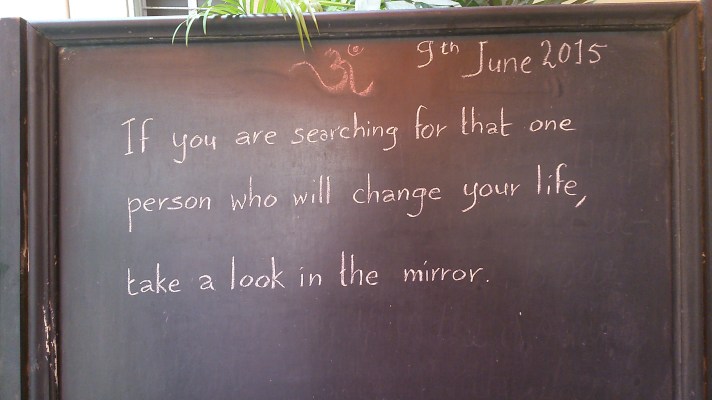 ॐ
9th June 2015
If you are searching for that one
person who will change your life,
take a look in the mirror.